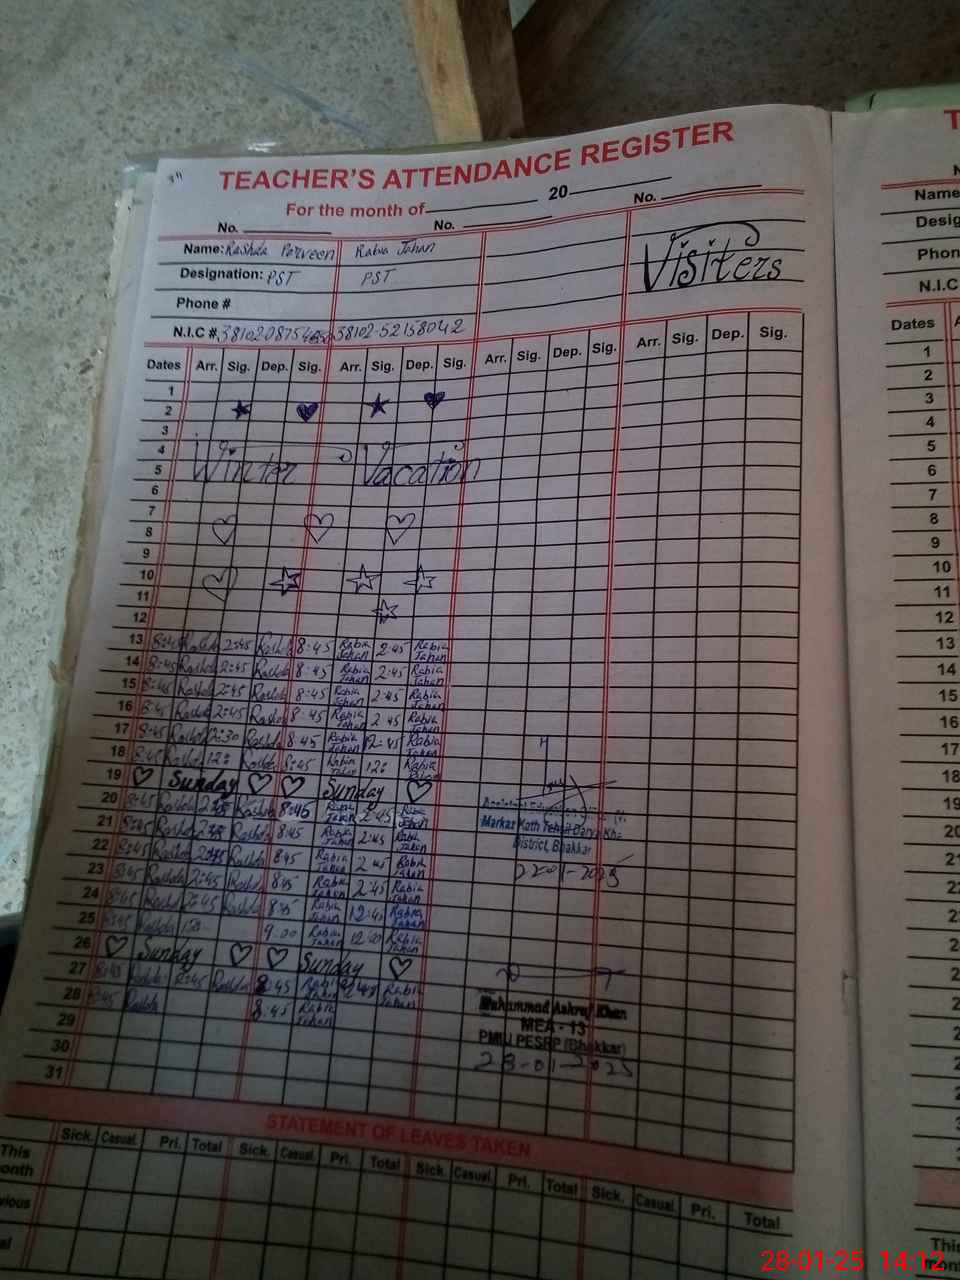 TEACHER'S ATTENDANCE REGISTER
For the month of 20
No. No. No.
Name: Rashda Perveen Rabia Jahan
Visiters
Designation: PST PST
Phone #
N.I.C # 38102-52158042
Dates Arr. Sig. Dep. Sig. Arr. Sig. Dep. Sig. Arr. Sig. Dep. Sig. Arr. Sig. Dep. Sig.
1
2
3
4
Winter Vacation
5
6
7
8
9
10
11
12
13 8:45 Rashda 2:45 Rashda 8:45 Rabia Jahan 2:45 Rabia Jahan
14 8:45 Rashda 2:45 Rashda 8:45 Rabia Jahan 2:45 Rabia Jahan
15 8:45 Rashda 2:45 Rashda 8:45 Rabia Jahan 2:45 Rabia Jahan
16 8:45 Rashda 2:45 Rashda 8:45 Rabia Jahan 2:45 Rabia Jahan
17 8:45 Rashda 12:30 Rashda 8:45 Rabia Jahan 12:45 Rabia Jahan
18 8:45 Rashda 12: Rashda 8:45 Rabia Jahan 12: Rabia
19 Sunday Sunday
20 8:45 Rashda 2:45 Rashda 8:45 Rabia Jahan 2:45 Rabia Jahan
21 8:45 Rashda Rashda 8:45 Rabia Jahan 2:45 Rabia Jahan
22 8:45 Rashda Rashda 8:45 Rabia Jahan 2:45 Rabia Jahan
23 8:45 Rashda 2:45 Rashda 8:45 Rabia Jahan 2:45 Rabia Jahan
24 8:45 Rashda Rashda 8:45 Rabia Jahan 12:45 Rabia Jahan
25 8:45 Rashda 9:00 Rabia Jahan 12:00 Rabia Jahan
26 Sunday Sunday
27 8:45 Rashda 2:45 Rashda 8:45 Rabia Jahan 2:45 Rabia Jahan
28 8:45 Rashda 8:45 Rabia Jahan
29
30
31
Markaz
District, Bhakkar
Muhammad Ashraf Khan
MEA - 13
PMIU PESRP (Bhakkar)
28-01-2025
STATEMENT OF LEAVES TAKEN
Sick. Casual. Pri. Total Sick. Casual. Pri. Total Sick. Casual. Pri. Total Sick. Casual. Pri. Total
This
month
vious
al
T
N
Name
Desig
Phon
N.I.C
Dates A
1
2
3
4
5
6
7
8
9
10
11
12
13
14
15
16
17
18
19
20
21
This
mon
28-01-25 14:12